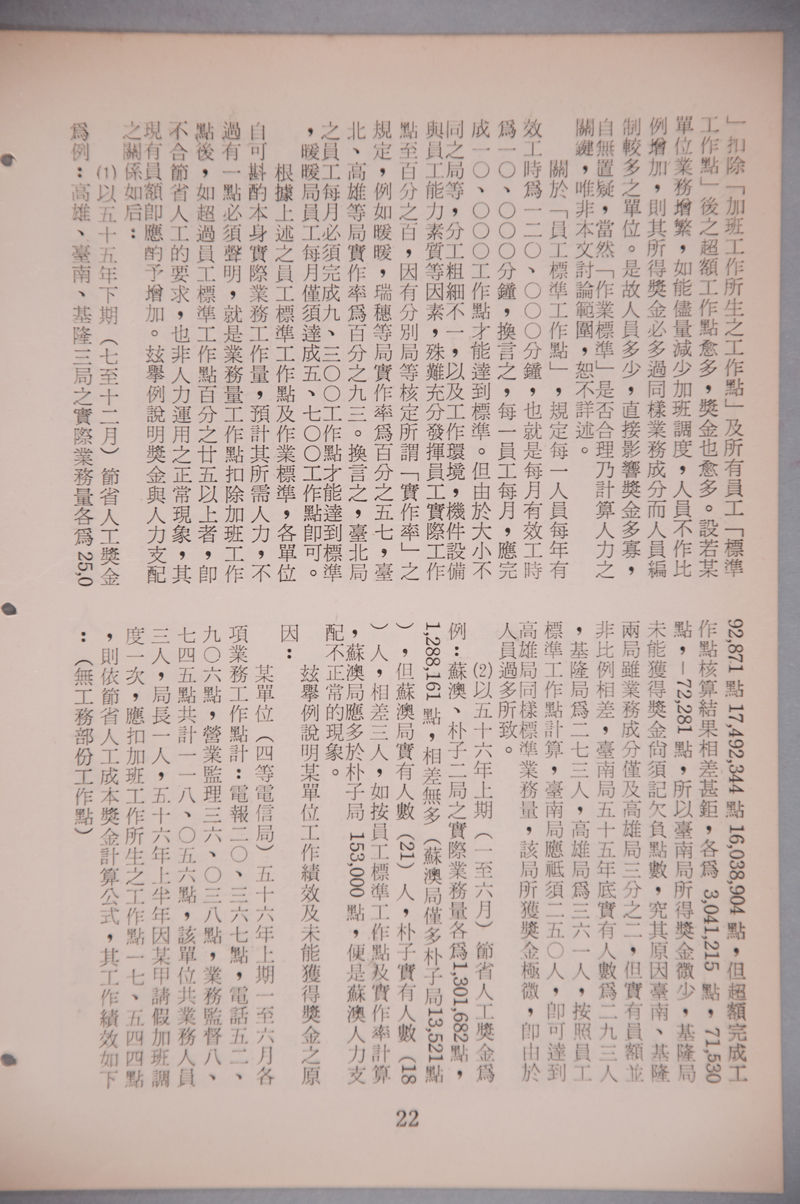 」扣除「加班工作所生之工作點」及所有員工「標準
工作點」後之超額工作點愈多，獎金也愈多。設若某
單位業務增繁，如能儘量減少加班調度，人員不作比
例增加，則其所得獎金必多過同樣業務成分而人員編
制較多之單位。是故人員多少，直接影響獎金多寡，
自無置疑，當然「作業標準」是否合理乃計算人力之
關鍵，唯非本文討論範圍，恕不詳述。
關於「員工標準工作點」，規定每一人員每年有
效工時爲一二〇、〇〇〇分鐘，也就是每月有效工時
爲一〇、〇〇〇分鐘，換言之，每一員工每月，應完
成一〇、〇〇〇工作點才能達到標準。但由於大小不
同之局等，分工粗細不一，以及工作環境，機件設備
與員工能力素質等因素，殊難充分發揮員工實際工作
點至百分之百，因有分別局等核定所謂「實作率」之
規定，例如暖暖，瑞穗等局實作率爲百分之五七，臺
北、高雄等局實作率爲百分之九三。換言之，臺北局
之員工每月必須完成九、三〇〇工作點才能達到標準
，暖暖局員工每月僅須達成五、七〇〇工作點卽可。
根據上述之員工標準工作點及作業標準，各單位
自可斟酌本身實際業務工作量，預計其所需人力，不
過有一點必須聲明，就是業務量工作點扣除加班工作
點後，如超過員工標準工作點百分之廿五以上者，卽
不合節省人工的要求，也非人力運用之正常現象，其
現有員額卽應酌予增加。玆擧例說明獎金與人力支配
之關係如后：
⑴以五十五年下期（七至十二月）節省人工獎金
爲例：高雄、臺南、基隆三局之實際業務量各爲25,0
92,871 點 17,492,344 點 16,038,904 點，但超額完成工
作點核算結果相差甚鉅，各爲 3,041,215 點，71,530
點，－72,281 點，所以臺南局所得獎金微少，基隆局
未能獲得獎金尙須記欠負點數，究其原因臺南、基隆
兩局雖業務成分僅及高雄局三分之二，但實有員額並
非比例相差，臺南局五十五年底實有人數爲二九三人
，基隆局爲二七三人，高雄局爲三六一人，按照員工
標準工作點計算，臺南局應祗須二五〇人，卽可達到
高雄局同樣標準業務量，該局所獲獎金極微，卽由於
人員過多所致。
⑵以五十六年上期（一至六月）節省人工獎金爲
例：蘇澳、朴子二局之實際業務量各爲1,301,682點，
1,288,161 點，相差無多（蘇澳局僅多朴子局13,521點
），但蘇澳局實有人數（21）人，朴子實有人數（18
）人，相差三人，如按員工標準工作點及實作率計算
，蘇澳局應多於朴子局 153,000 點，便是蘇澳人力支
配不正常的現象。
玆擧例說明某單位工作績效及未能獲得獎金之原
因：
某單位（四等電信局）五十六年上期一至六月各
項業務工作點計：電報二〇、三六七點，電話五二、
九〇六點，營業監理三六、〇三八點，業務監督八、
七四五點共計一一八、〇五六點，該單位共業務人員
三人，局長一人，五十六年上半年因某甲請假加班調
度一次，應扣加班工作所生之工作點一七、五四四點
，則依節省人工成本獎金計算公式，其工作績效如下
：（無工務部份工作點）
22